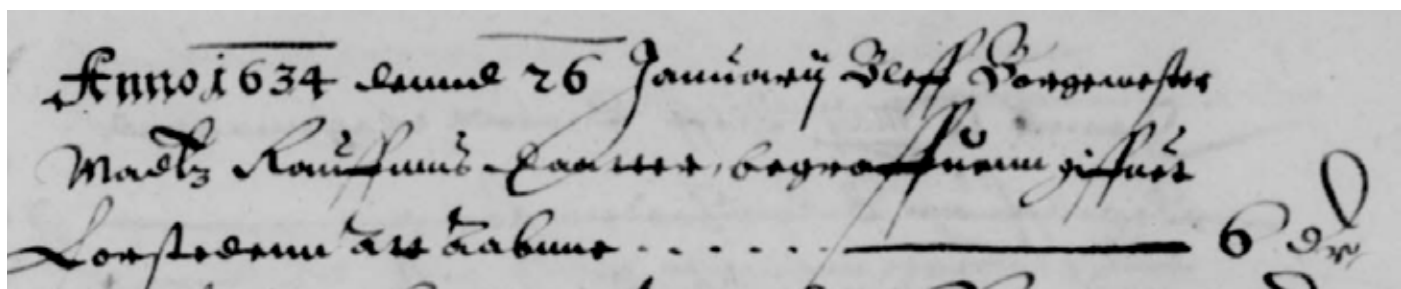 Anno 1634 dennd 26 Januarij Bleff Borgemester
Madtz Rauffnns Daatter, begraffuenn giffuet
for stedenn att aabnne . . . . . . 6 dr